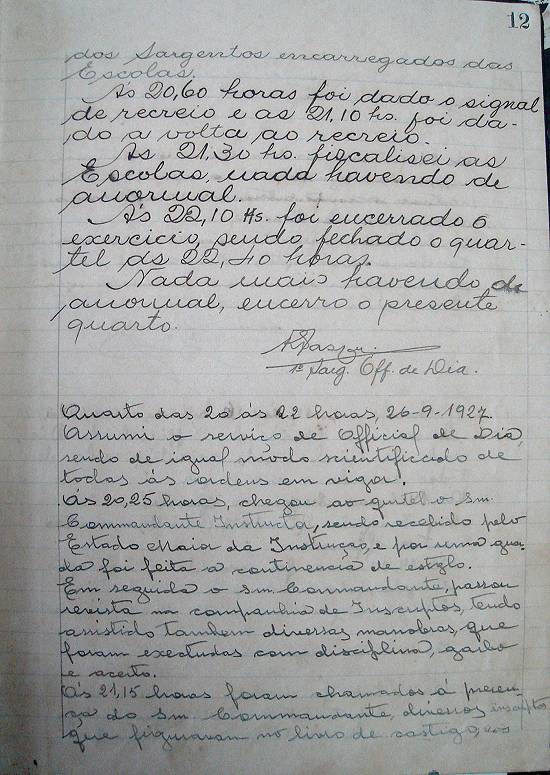 12
dos Sargentos encarregados das
Escolas.
Ás 20,60 horas foi dado o signal
de recreio e as 21,10 hs. foi da-
do a volta ao recreio.
As 21,30 hs. fiscalisei as
Escolas, nada havendo de
anormal.
Ás 22,10 Hs. foi encerrado o
exercicio, sendo fechado o quar-
tel ás 22,40 horas.
Nada mais havendo de
anormal, encerro o presente
quarto.
1º Sarg. Off. de Dia.
Quarto das 20 ás 22 horas, 26-9-1927.
Assumi o serviço de Official de Dia,
sendo de igual modo scientificado de
todas ás ordens em vigor.
Ás 20,25 horas, chegou ao quartel o snr.
Commandante Instructor, sendo recebido pelo
Estado Maior da Instrucção, e por uma gua-
da foi feita a continencia de estylo.
Em seguida o snr. Commandante, passou
revista na companhia de Inscriptos, tendo
assistido tambem diversas manobras, que
foram exectudas com disciplina, garbo
e acerto.
Ás 21,15 horas foram chamados á presen-
ça do snr. Commandante, diversos inscriptos
que figuravam no livro de castigo, vos